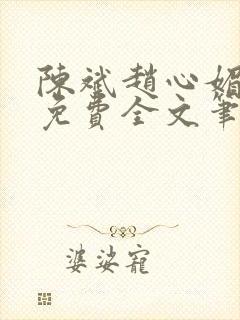 陳斌趙心媚
免費全文筆
婆娑寵